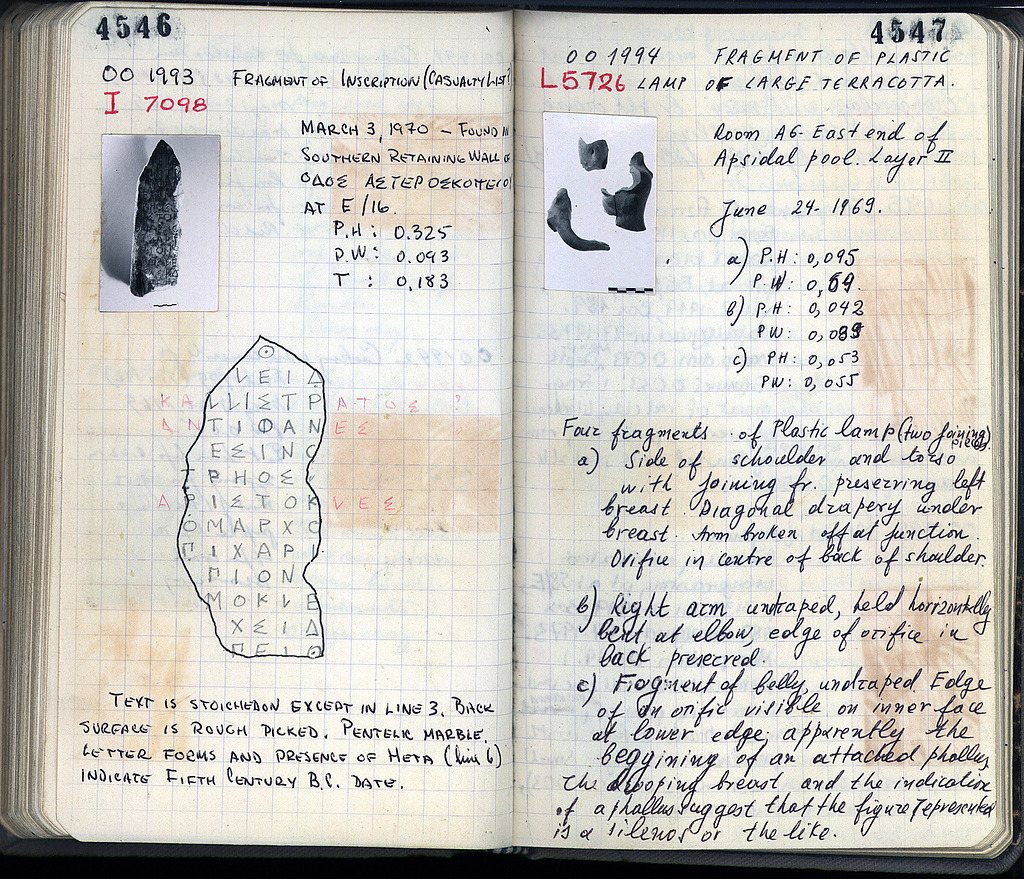 4546
OO 1993 FRAGMENT OF INSCRIPTION (CASUALTY LIST?
I 7098
MARCH 3, 1970 – FOUND IN
SOUTHERN RETAINING WALL OF
ΟΔΟΣ ΑΣΤΕΡΟΣΚΟΠΕΙΟ
AT E/16.
P.H: 0.325
P.W: 0.093
T : 0.183
ΛΕΙΔ
ΚΑΛΛΙΣΤΡΑΤΟΣ ?
ΑΝΤΙΦΑΝΕΣ
ΕΣΙΝΟ
ΡΗΟΣ
ΑΡΙΣΤΟΚΛΕΣ
ΟΜΑΡΧΟ
ΠΙΧΑΡΙ
ΠΙΟΝ
ΜΟΚΛΕ
ΧΣΙΔ
ΠΕΙΘ
TEXT IS STOICHEDON EXCEPT IN LINE 3. BACK
SURFACE IS ROUGH PICKED. PENTELIC MARBLE.
LETTER FORMS AND PRESENCE OF HETA (line 6)
INDICATE FIFTH CENTURY B.C. DATE.
4547
OO 1994 FRAGMENT OF PLASTIC
L5726 LAMP OF LARGE TERRACOTTA.
Room A6- East end of
Apsidal pool. Layer II
June 24- 1969.
a) P.H: 0,095
P.W: 0,69.
b) P.H: 0,042
PW: 0,089
c) PH: 0,053
PW: 0,055
Four fragments of Plastic lamp (two joining
pieces.
a) Side of schoulder and torso
with joining fr. preserving left
breast. Diagonal drapery under
breast. Arm broken off at junction.
Orifice in centre of back of shoulder.
b) Right arm undraped, held horizontally
bent at elbow, edge of orifice in
back preserved.
c) Fragment of belly, undraped. Edge
of an orific visible on inner face
at lower edge, apparently the
beggining of an attached phallus,
The drooping breast and the indication
of a phallus suggest that the figure represented
is a silenos or the like.